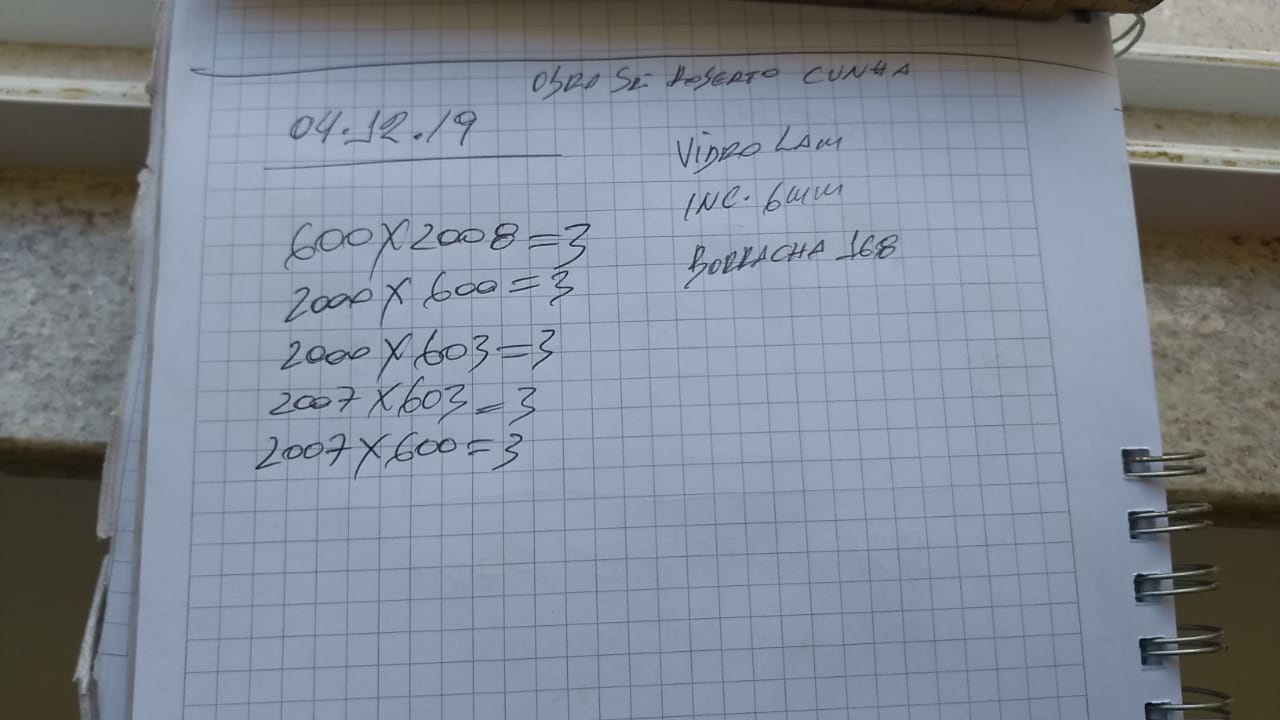 OBRA SR. ROBERTO CUNHA
04.12.19
VIDRO LAM
INC. 6mm
BORRACHA 168
600X2008=3
2000X600=3
2000X603=3
2007X603=3
2007X600=3